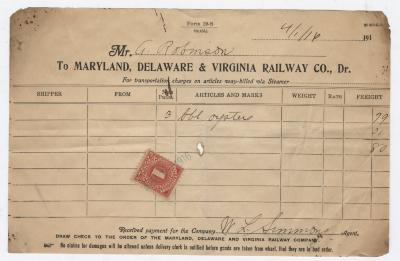 Form 28-S
4/1/16 191
Mr. A Robinson
To MARYLAND, DELAWARE & VIRGINIA RAILWAY CO., Dr.
For transportation charges on articles way-billed via Steamer
SHIPPER FROM ARTICLES AND MARKS WEIGHT RATE FREIGHT
3 bbl oysters 79
80
1
1916
Received payment for the Company, W L Simmons Agent.
DRAW CHECK TO THE ORDER OF THE MARYLAND, DELAWARE AND VIRGINIA RAILWAY COMPANY.
No claims for damages will be allowed unless delivery clerk is notified before goods are taken from wharf, that they are in bad order.